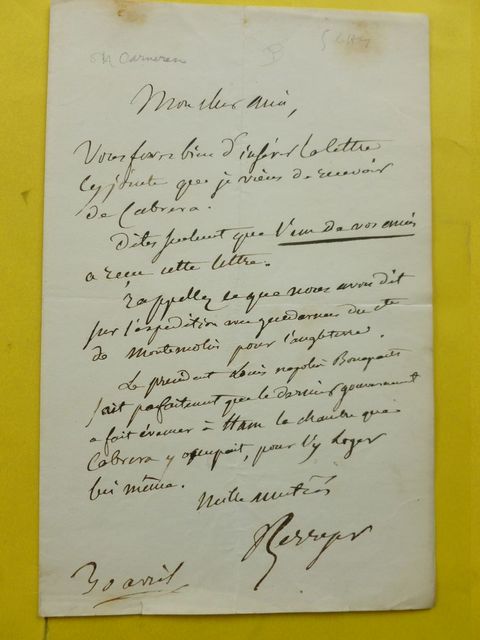 Mon cher ami,
Vous feriez bien d'insérer la lettre
ci jointe que je viens de recevoir
de Cabrera.
Dites seulement que l'un de vos amis
a reçu cette lettre.
rappellez ce que nous avons dit
sur l'expédition du cte
de Montemolin pour l'angleterre.
Le president Louis napoléon Bonaparte
sait parfaitement que le dernier gouvernement
a fait évacuer à Ham la chambre que
Cabrera y occupait, pour l'y loger
lui même.
mille amitiés
30 avril